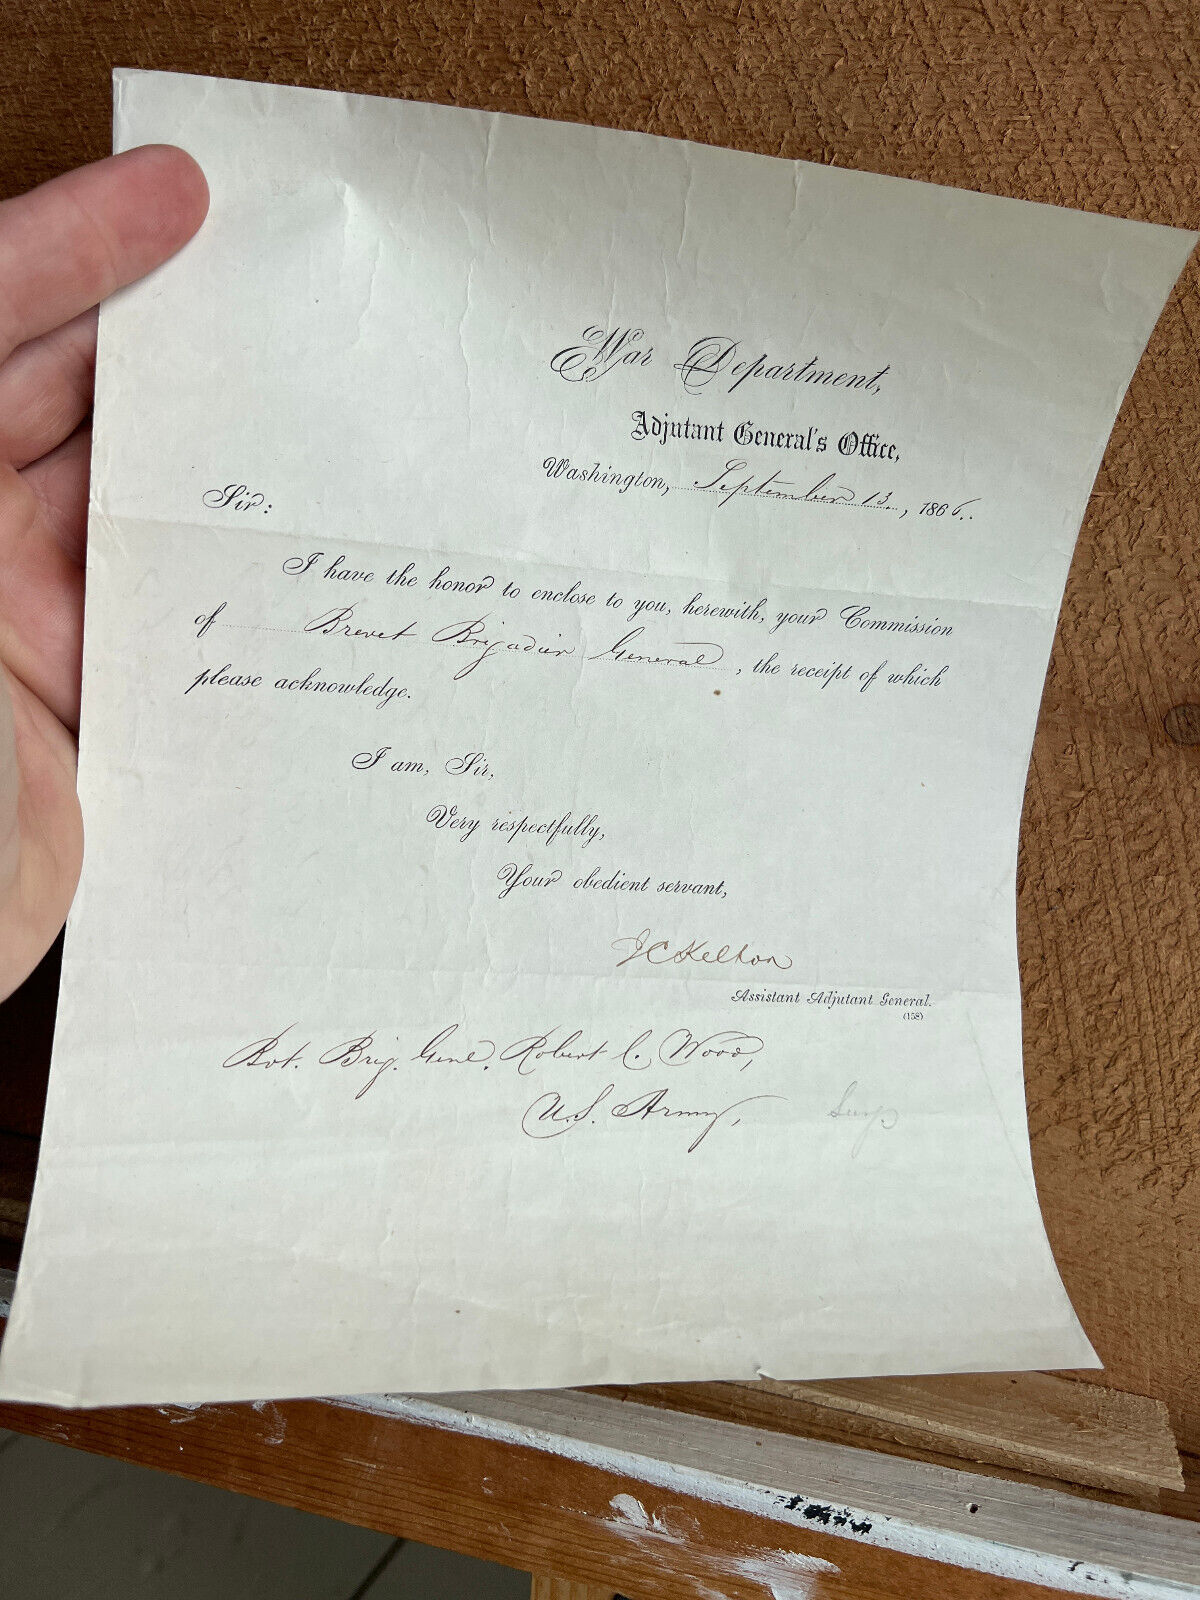 War Department,
Adjutant General's Office,
Washington, September 13, 1866.
Sir:
I have the honor to enclose to you, herewith, your Commission
of Brevet Brigadier General, the receipt of which
please acknowledge.
I am, Sir,
Very respectfully,
Your obedient servant,
J C Kelton
Assistant Adjutant General.
(158)
Bvt. Brig. Genl. Robert C. Wood,
U.S. Army,